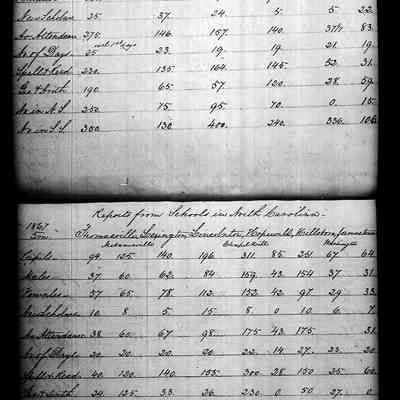 New Scholars 25. 37. 24. 5. 5. 22.
Av Attendance 275. 146. 157. 140. 37½ 83.
incl 1st days
No of Days 25 23. 19. 19. 21. 19.
Spell & Read 220. 135. 164. 145. 52. 31.
Geo & Arith 190. 65. 57. 120. 28. 59.
No in N.S. 250. 75. 95. 70. 0. 15.
No in S.S. 350. 130. 400. 240. 336. 106
Reports from Schools in North Carolina.
1867
Thomasville, Lexington, Lincolnton, Hopewell, Hillsboro, Jamestown
Chapel Hill
Pupils 94. 125. 140. 196. 311. 85 251. 67. 64.
Males 37. 60. 62. 84. 159. 43. 154 37. 31.
Females 57. 65. 78. 112. 152. 42. 97. 29. 33.
New Scholars 10. 8. 5. 15. 8. 0. 10. 6. 7.
Av Attendance 38. 60. 67. 98. 175. 43. 175. 31.
No of Days 20. 20. 20. 20. 22. 14. 27. 23. 20.
Spell & Read 40. 120. 140. 155. 300. 28. 150. 25. 60.
Geo & Arith 24. 125. 33. 26. 230. 0. 50. 27. 0.